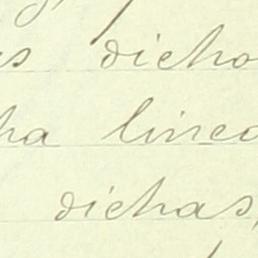 s dicho
ha linea
dichas,